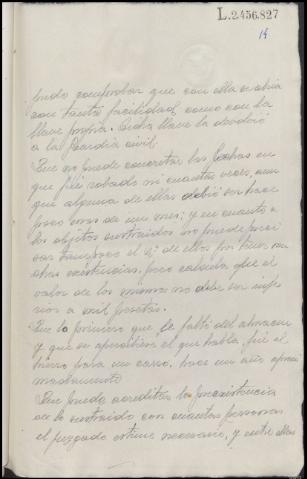 L.2456.827
14
pudo comprobar que con ella se abria
con tanta facilidad, como con la
llave propia. Dicha llave la devolvió
a la Guardia civil.
Que no puede concretar las fechas en
que fué robado ni cuantas veces, aun
que alguna de ellas debió ser hace
poco mas de un mes; y en cuanto a
los objetos sustraidos no puede preci
sar tampoco el nº de ellos por tener
otras existencias, pero calcula que el
valor de los mismos no debe ser infe
rior a mil pesetas.
Que lo primero que le faltó del almacen
y que se apercibiera el que habla, fué el
hierro para un carro, hace un año aproxi
madamente
Que puede acreditar la preexistencia
de lo sustraido con cuantas personas
el juzgado estime necesario, y entre ellas